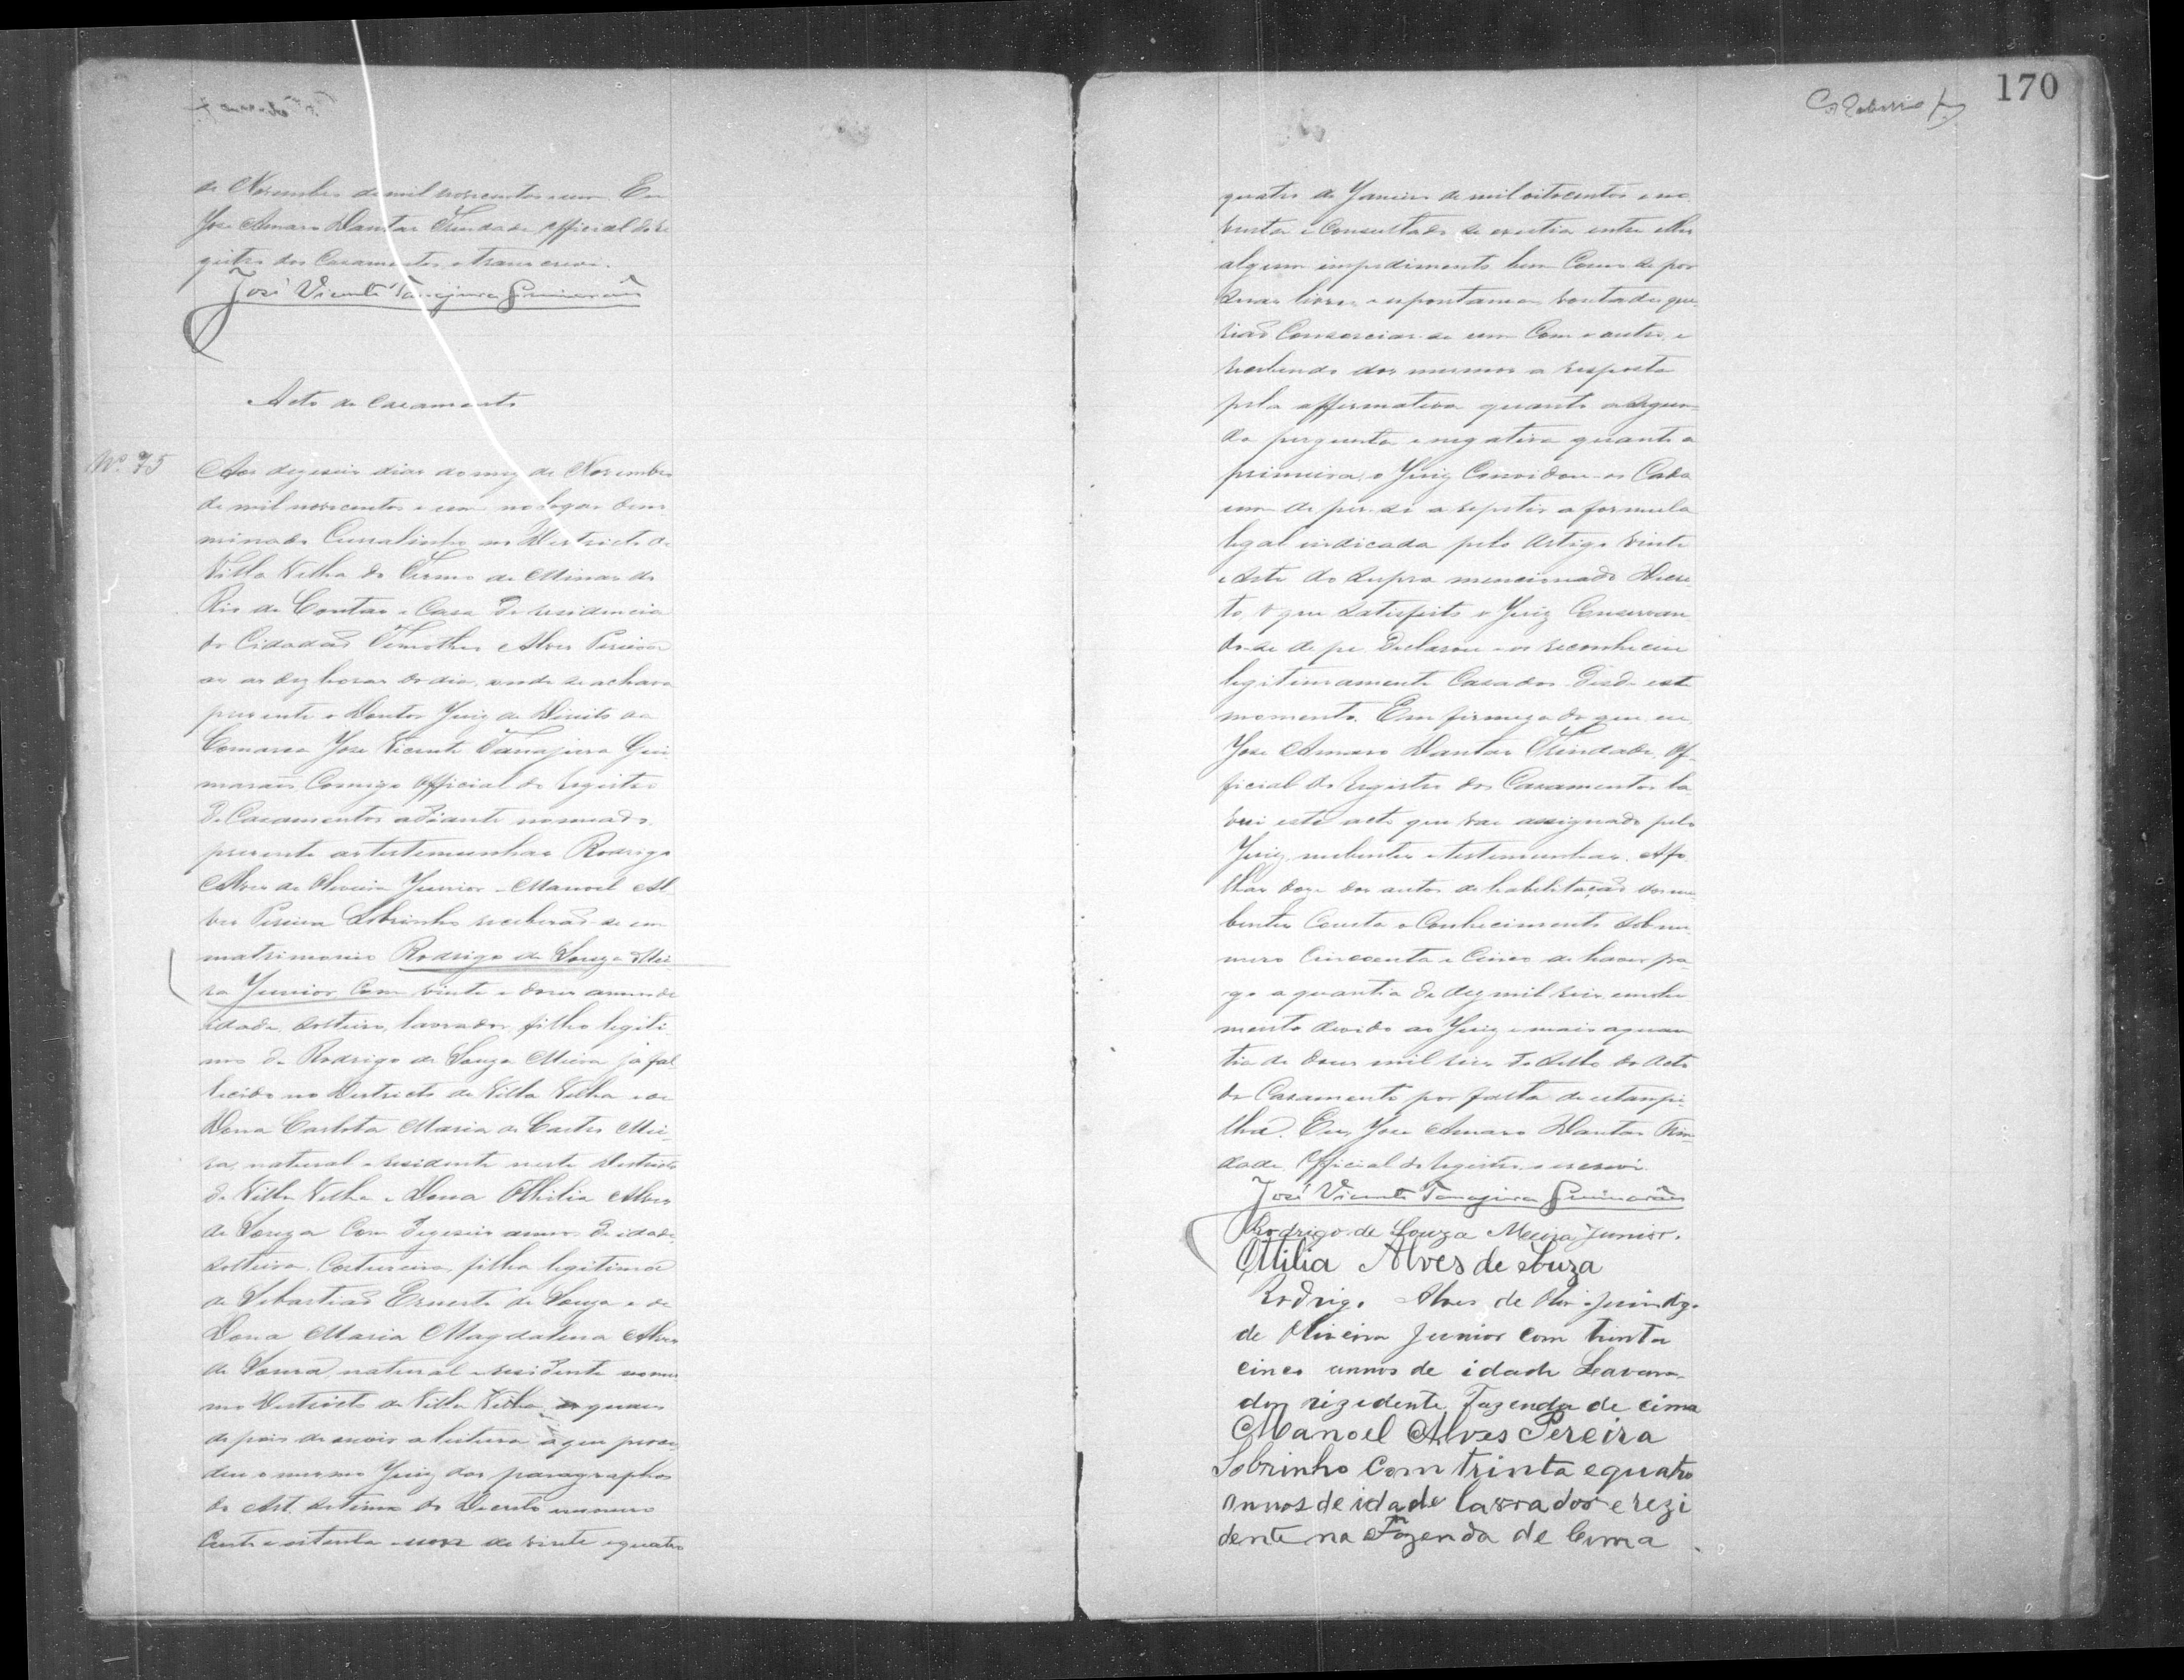 170
de Novembro de mil novecentos e um. Eu
Jose Amaro Dantas Trindade official do re
gistro dos Casamentos o transcrevi.
José Vicente Tanajura Guimarães
Acto de Casamento
Nº 75
Aos dezeseis dias do mez de Novembro
de mil novecentos e um no logar deno
minado Curralinho no Districto de
Villa Velha do Termo de Minas do
Rio de Contas e Casa de residencia
do Cidadão Timotheo Alves Pereira
as dez horas do dia, onde se achava
presente o Doutor Juiz de Direito da
Comarca Jose Vicente Tanajura Gui
marães Comigo Official do registro
de Casamentos adiante nomeado,
presente as testemunhas Rodrigo
Alves de Oliveira Junior e Manoel Al
ves Pereira Sobrinho receberão-se em
matrimonio Rodrigo de Souza Mei-
ra Junior Com vinte e dous annos de
idade, solteiro, lavrador, filho legiti
mo de Rodrigo de Souza Meira ja fal
lecido no Districto de Villa Velha e de
Dona Carlota Maria de Castro Mei-
ra, natural e residente neste Districto
de Villa Velha e Dona Othilia Alves
de Souza Com dezeseis annos de idade,
solteira, Costureira, filha legitima
de Sebastião Ernesto de Souza e de
Dona Maria Magdalena Alves
de Souza, natural e residente no mes
mo Districto de Villa Velha, os quaes
depois de ouvir a leitura a que proce
deu o mesmo Juiz dos paragraphos
do Art. setimo do Decreto numero
Cento e oitenta e um de vinte e quatro
quatro de Janeiro de mil oitocentos e no
venta e Consultado se existia entre elles
algum impedimento bem Como se por
suas livres e espontaneas vontades que-
rião Consorciar-se um Com o outro, e
recebendo dos mesmos a resposta
pela affirmativa quanto a segun-
da pergunta e negativa quanto a
primeira, o Juiz Convidou-os Cada
um de per-si a repetir a formula
legal indicada pelo Artigo vinte
e sete do supra mencionado Decre-
to, o que satisfeito o Juiz Conservan
do-se de pe Declarou e os reconheceu
legitimamente Casados desde este
momento. Em firmeza do que eu,
Jose Amaro Dantas Trindade, Of-
ficial do Registro dos Casamentos la-
vrei este acto que vae assignado pelo
Juiz, nubentes e testemunhas. Afo
lhas doze dos autos de habilitação dos nu
bentes Consta o Conhecimento sob nu-
mero Cincoenta e Cinco de haver pa-
go a quantia de dez mil reis emolu
mento devido ao Juiz e mais a quan
tia de dous mil reis do sello do Acto
do Casamento por falta de estampi-
lha. Eu, Jose Amaro Dantas Trin-
dade, Official do registro o escrevi.
José Vicente Tanajura Guimarães
Rodrigo de Souza Meira Junior.
Otilia Alves de Souza
Rodrigo Alves de
de Oliveira Junior com trinta
cinco annos de idade Lavara-
dor rizidente Fazenda de cima
Manoel Alves Pereira
Sobrinho Com trinta e quatro
annos de idade lavrador e rezi
dente na Fazenda de Cima